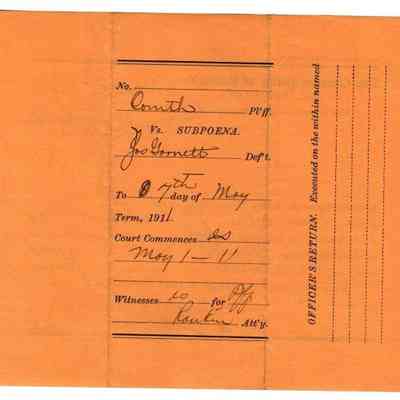 No.
Comth Pl'ff.
Vs. SUBPOENA.
Jos Garnett Def't.
To 7th day of May
Term, 1911
Court Commences is
May 1 - 11
Witnesses is for Pff
Rankin Att'y.
OFFICER'S RETURN. Executed on the within named